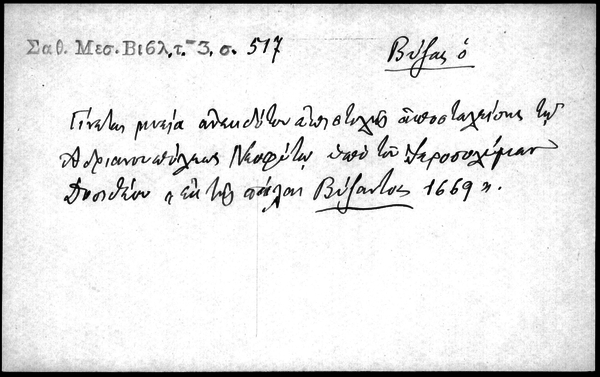 Σαθ. Μεσ. Βιβλ, τ. 3, σ. 517
Βύζας ὁ
Γίνεται μνεία ἀνεκδότου ἐπιστολῆς ἀποσταλείσης τῷ
Ἀδριανουπόλεως Νεοφύτῳ ὑπὸ τοῦ Ἱεροσολύμων
Δοσιθέου « ἐκ τῆς πάλαι Βύζαντος 1669 ».